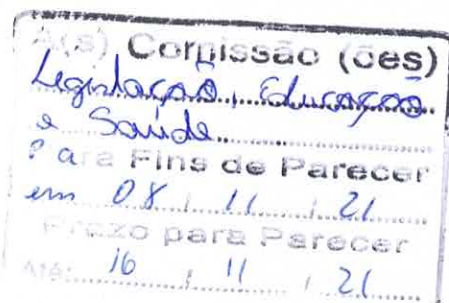 A(s) Comissão (ões)
Legislação, Educação
e Saúde
Para Fins de Parecer
em 08 / 11 / 21
Prazo para Parecer
Até: 16 / 11 / 21